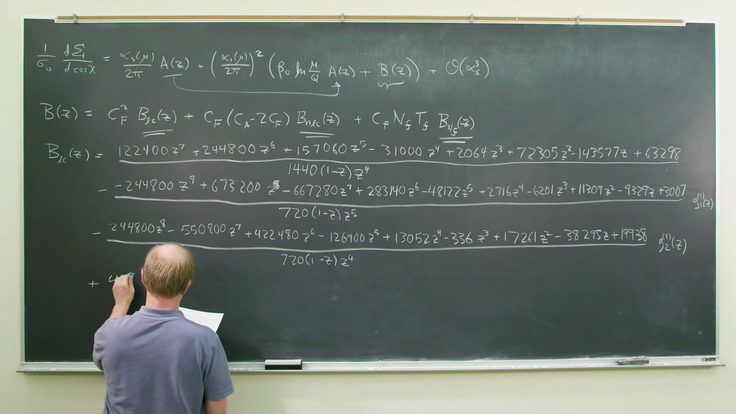 1/σ₀ dΣ/dcosχ = αₛ(μ)/2π A(z) + (αₛ(μ)/2π)² (β₀ ln μ/Q A(z) + B(z)) + O(αₛ³)
B(z) = C_F² B_lc(z) + C_F(C_A-2C_F) B_nlc(z) + C_F N_f T_f B_Nf(z)
B_lc(z) = 122400z⁷+244800z⁶+157060z⁵-31000z⁴+2064z³+72305z²-143577z+63298
1440(1-z)z⁴
- -244800z⁹+673200z⁸-667280z⁷+283140z⁶-48122z⁵+2716z⁴-6201z³+11309z²-9329z+3007 g₁⁽¹⁾(z)
720(1-z)z⁵
- 244800z⁸-550800z⁷+422480z⁶-126900z⁵+13052z⁴-336z³+17261z²-38295z+19938 g₂⁽¹⁾(z)
720(1-z)z⁴
+